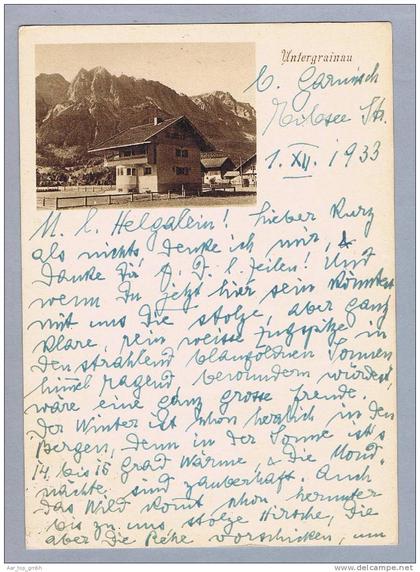 Untergrainau
b. Garmisch
Eibsee Str.
1. XII. 1933
M. l. Helgalein! Lieber kurz
als nichts, denke ich mir, &
danke Dir f. D. l. Zeilen! Und
wenn Du jetzt hier sein könntest
mit uns die stolze, aber ganz
klare, rein weisse Zugspitze in
den strahlend blaugoldnen Sonnen
himmel ragend, bewundern würdest
wäre eine ganz grosse Freude.
Der Winter ist schon herrlich in den
Bergen, denn in der Sonne ist's
14 bis 15 Grad Wärme, & die Mond-
nächte sind zauberhaft. Auch
das Wild kommt schon herunter
bis zu uns, stolze Hirsche, die
aber die Rehe vorschicken, um
Aar_top_gmbh
www.delcampe.net